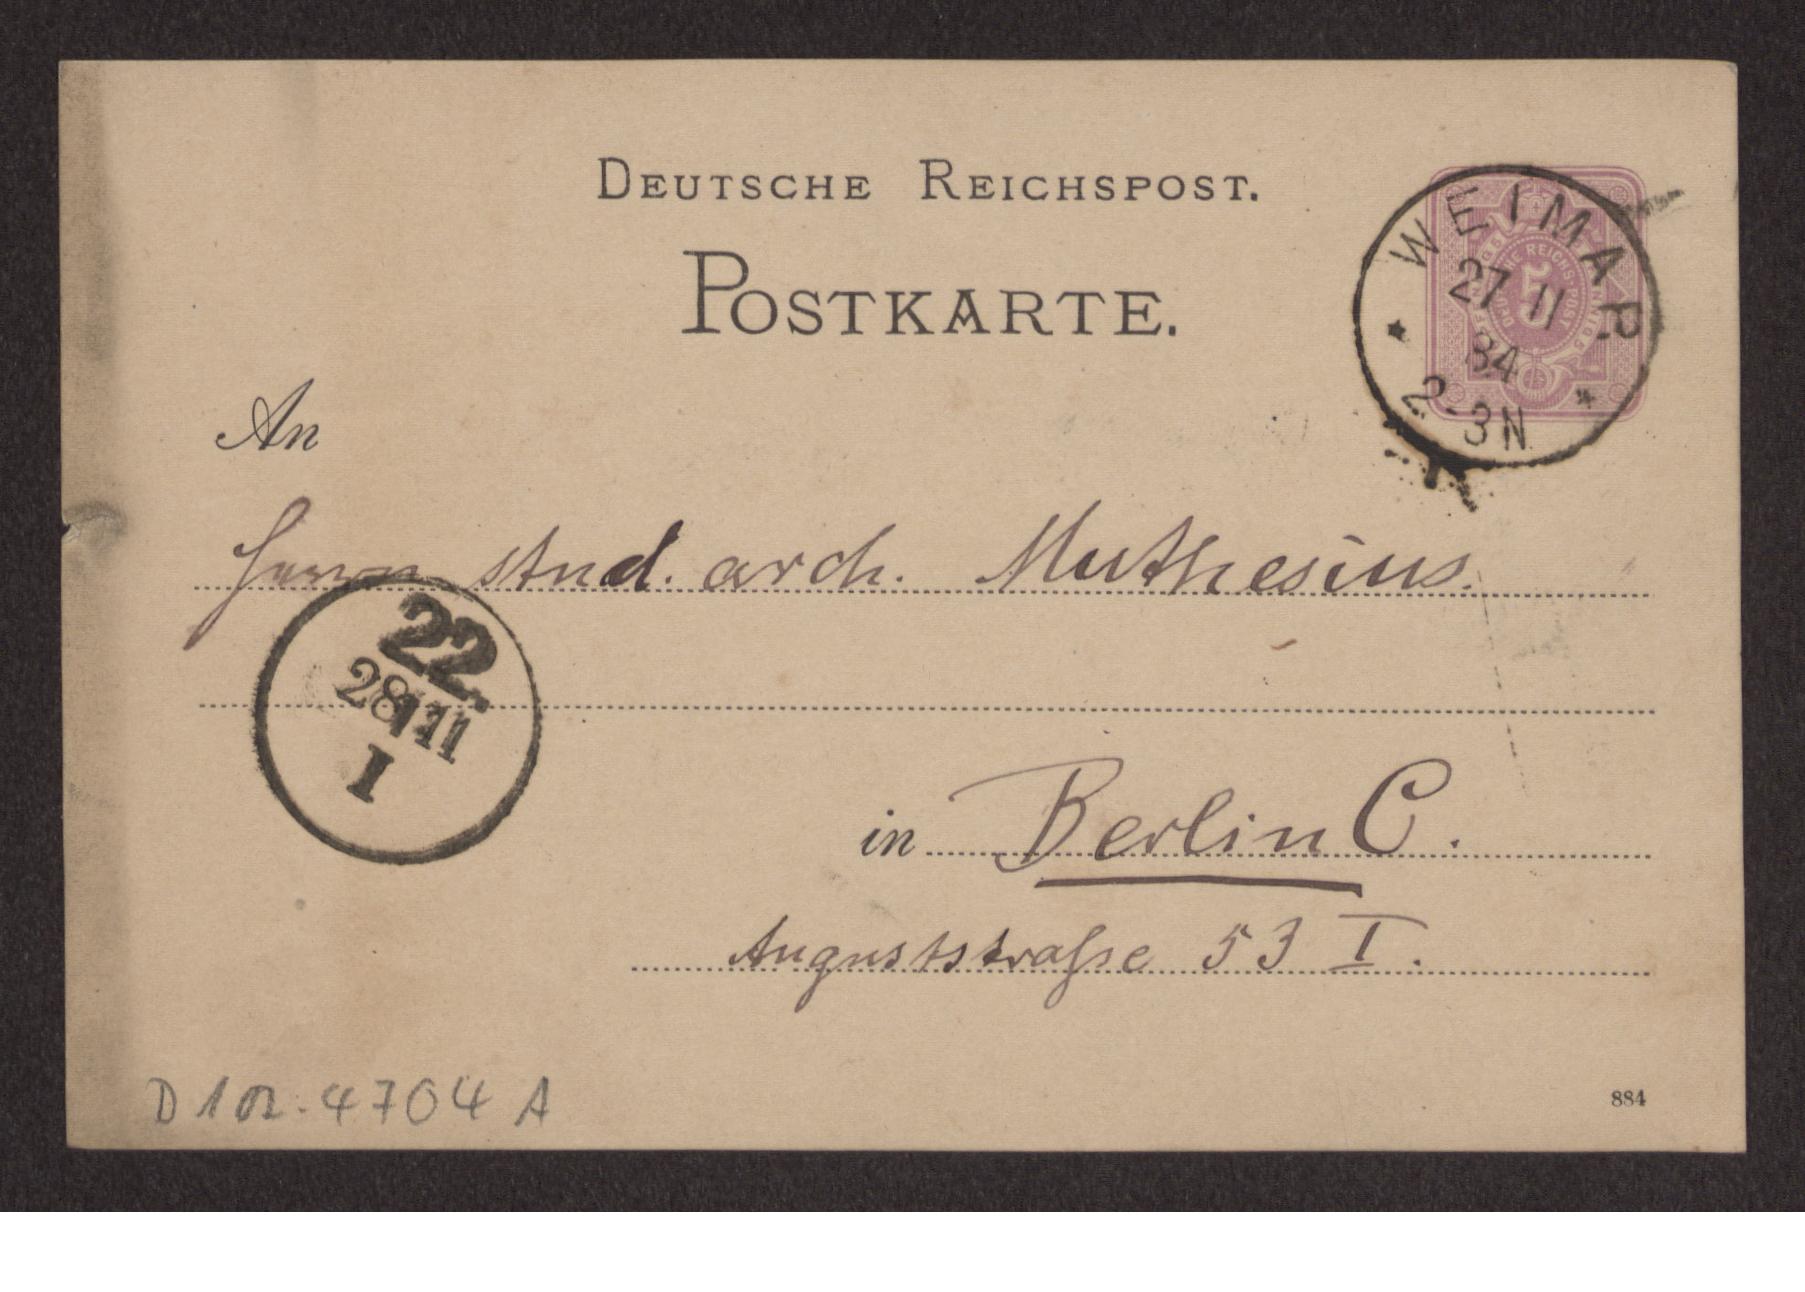 DEUTSCHE REICHSPOST.
POSTKARTE.
WEIMAR
27 11
84
2-3N
5
An
Herrn stud. arch. Muthesius.
22.
28/11
I
in Berlin C.
Auguststraße 53 I.
4704 A
884